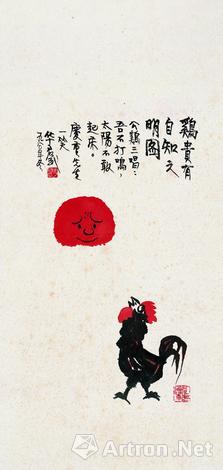 鷄貴有
自知之
明圖
公鷄三唱：
吾不打鳴，
太陽不敢
起床。
慶重先生
一笑
Artron.Net